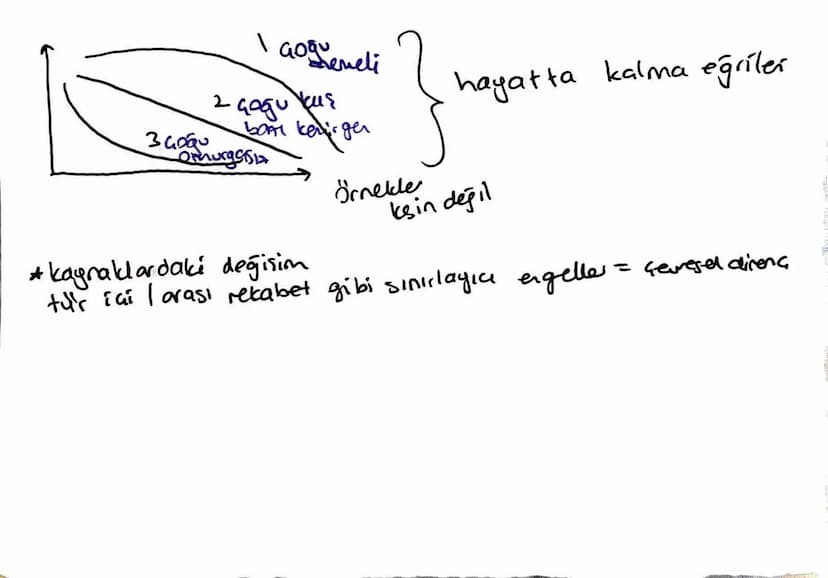 1 çoğu
memeli
2 çoğu kuş
bazı kemirgen
3 çoğu
omurgasız
hayatta kalma eğriler
örnekler
kesin değil
* kaynaklardaki değişim
tür içi / arası rekabet gibi sınırlayıcı engeller = çevresel direnç